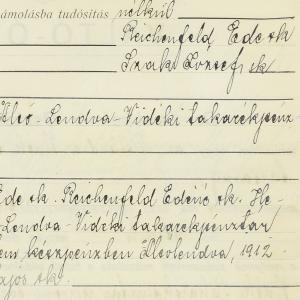 ámolásba tudósítás nélkül
Reichenfeld Ede sk
Szaki József sk
Alsó-Lendva-Vidéki takarékpénz-
Ede sk. Reichenfeld Edéné sk. He-
-Lendva-Vidéki takarékpénztár
em készpénzben Alsólendva, 1912
ajos sk.